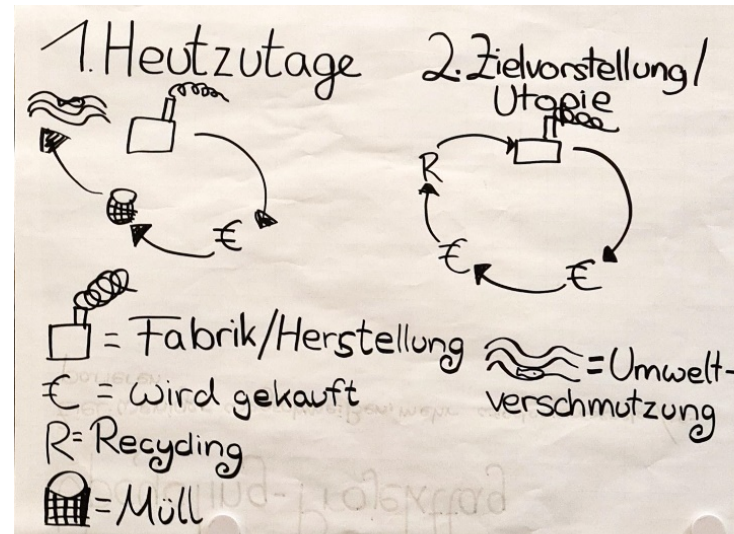 1. Heutzutage
2. Zielvorstellung/
Utopie
€
R
€
€
= Fabrik/Herstellung
€ = wird gekauft
R = Recycling
= Müll
= Umwelt-
verschmutzung